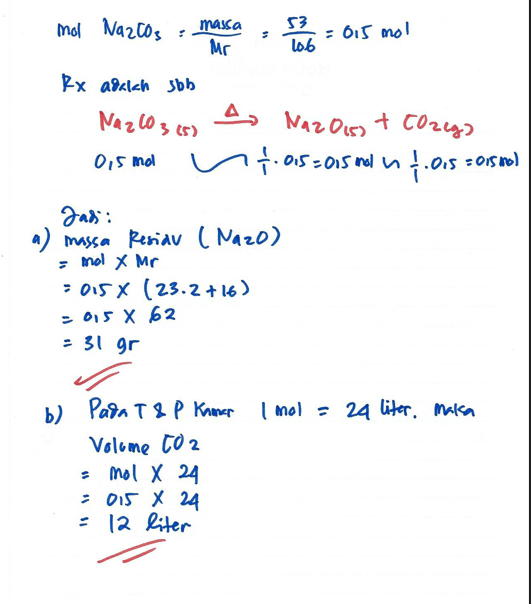 mol Na2CO3 = massa/Mr = 53/106 = 0,5 mol
Rx adalah sbb
Na2CO3(s) Δ→ Na2O(s) + CO2(g)
0,5 mol ~ 1/1 . 0,5 = 0,5 mol ~ 1/1 . 0,5 = 0,5 mol
Jadi :
a) massa Residu ( Na2O )
= mol X Mr
= 0,5 X ( 23.2 + 16 )
= 0,5 X 62
= 31 gr
b) Pada T & P Kamar 1 mol = 24 liter. maka
Volume CO2
= mol X 24
= 0,5 X 24
= 12 liter